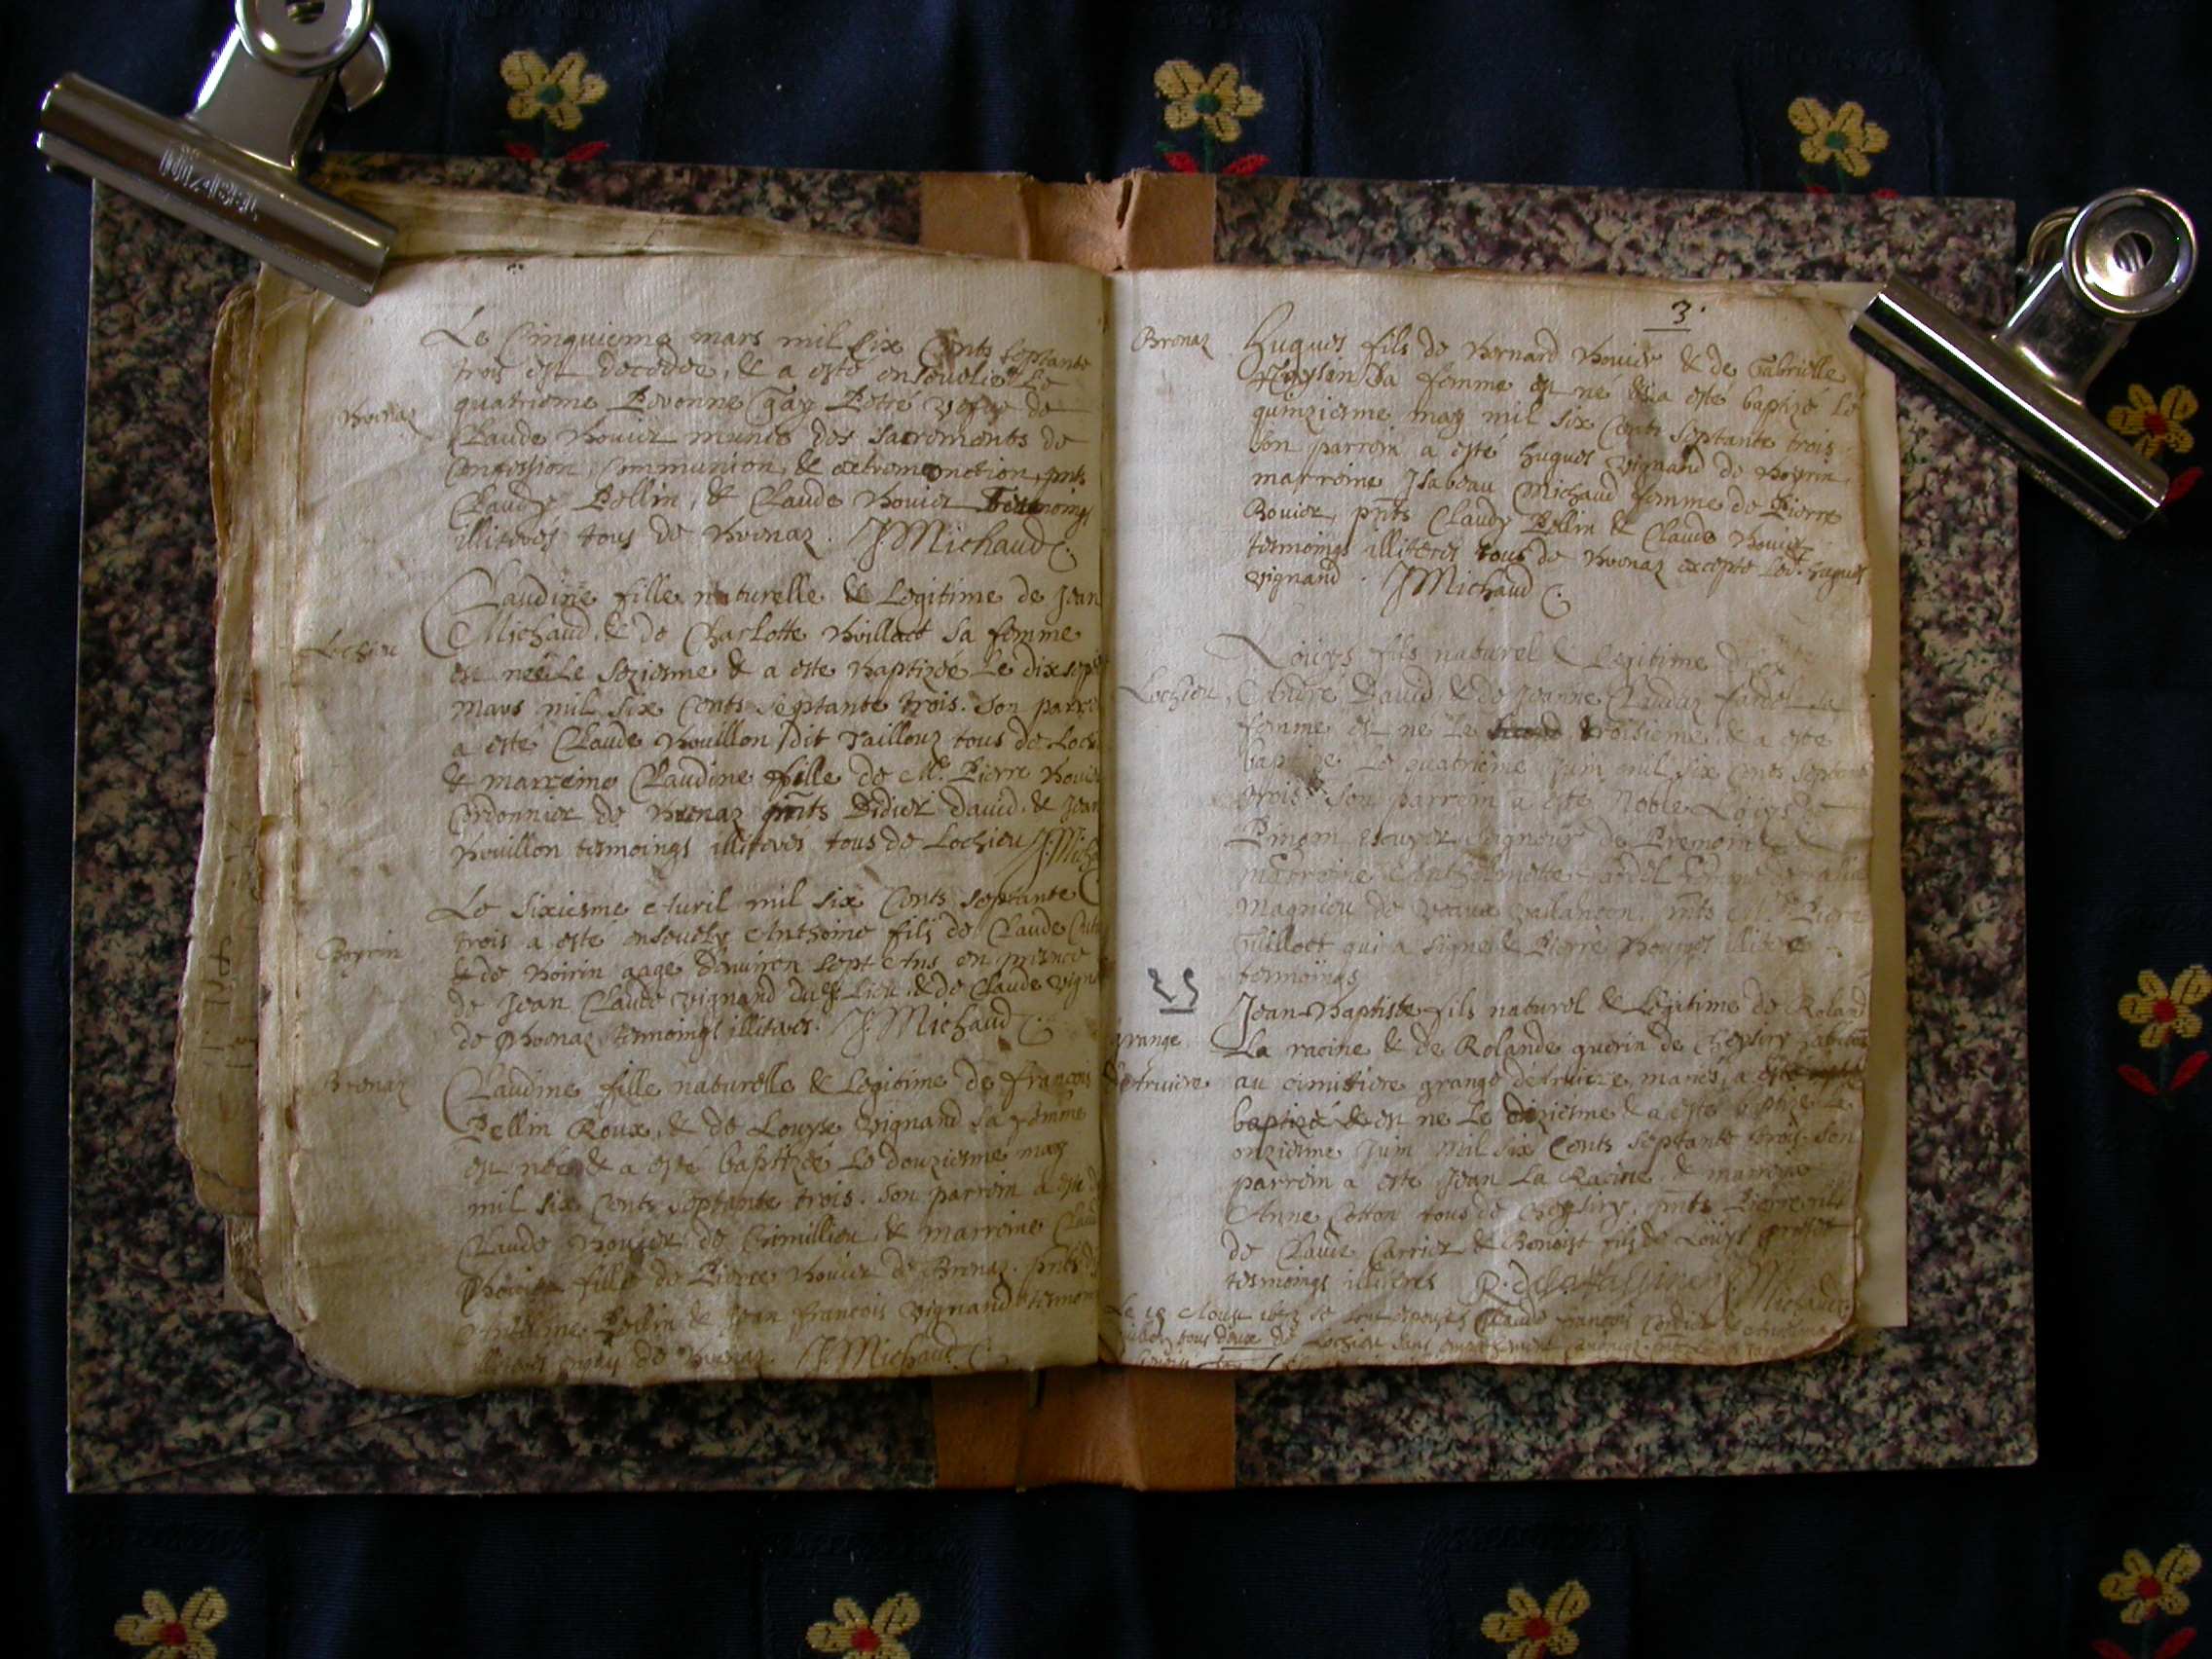 Le Cinquieme mars mil Six Cents septante
trois est decedée, & a esté ensevelie Le
quatrieme Pevonne Gay Petré vefve de
Brenaz
Claude Bovier munie des sacrements de
Confession Communion & extremonction, pnts
Claudy Pellin, & Claude Bovier tesmoings
illiterés tous de Brenaz. J Michaud C.
Claudine fille naturelle & Legitime de Jean
Michaud, & de Charlotte Boillact sa femme
Lochieu
est née Le sezieme & a este Baptizée Le dixsept
Mars mil six Cents septante trois. Son parrein
a esté Claude Bouillon dit Taillouz tous de Loch
& marreine Claudine fille de Me. Pierre Bovier
Cordonnier de Brenaz pnts Didier David, & Jean
Bouillon tesmoings illiterés tous de Lochieu J. Mich
Le sixiesme Avril mil six Cents septante
trois a esté ensevely Anthoine fils de Claude
Boyrin
de Boirin aage denviron sept Ans en presence
de Jean Claude vignand dud. Lieu & de Claude vignand
de Brenaz tesmoings illiteres. J. Michaud C.
Brenaz
Claudine fille naturelle & Legitime de francois
Pellin Roux, & de Louyse vignand sa femme
est née & a esté baptizée Le douziesme may
mil six Cents septante trois. Son parrein a este
Claude Bovier de Chimillieu & marreine
fille de Pierre Bovier de Brenaz. pnts
Anthoine Pellin & Jean francois vignand tesmoings
illiteres de Brenaz. J. Michaud C.
3.
Brenaz
Hugues fils de Bernard Bovier & de Gabrielle
sa femme est né & a esté baptizé Le
quinziesme may mil six Cents septante trois
Son parrein a esté hugues vignand de Boyrin
marreine Isabeau Michaud femme de Pierre
Bovier, pnts Claudy Pellin & Claude Bovier
tesmoings illiterés tous de Brenaz excepté Led. hugues
vignand. J Michaud C.
Louys fils naturel & Legitime d'
Lochieu
André David & de Jeanne Claudaz fardel sa
femme est ne Le troisieme & a este
baptizé Le quatrieme Juin mil six Cents septante
trois. Son parrein a esté Noble Louys de
Pingon escuyer seigneur de Premoin &
marreine Anthelmette fardel femme de
Magnieu de veaux vallancon. pnts Me. Pierre
Guilloct qui a signé & Pierre Bourget illitere
tesmoings
Jean-Baptiste fils naturel & Legitime de Roland
grange
La racine & de Rolande guerin de Cheysiry habitans
detruiere
au cimistiere grange detruiere, mariés, a
baptizé & est ne Le dixiesme & a esté baptizé Le
onziesme Juin Mil six Cents septante trois. Son
parrein a este Jean La Racine & marreine
Anne Cotton tous de Cheysiry. pnts Pierre fils
de Claude Carrier & Benoist fils de Louys
tesmoings illiteres Michaud
Le 18 se sont espousés Claude francois
tous deux de Lochieu sans empechement